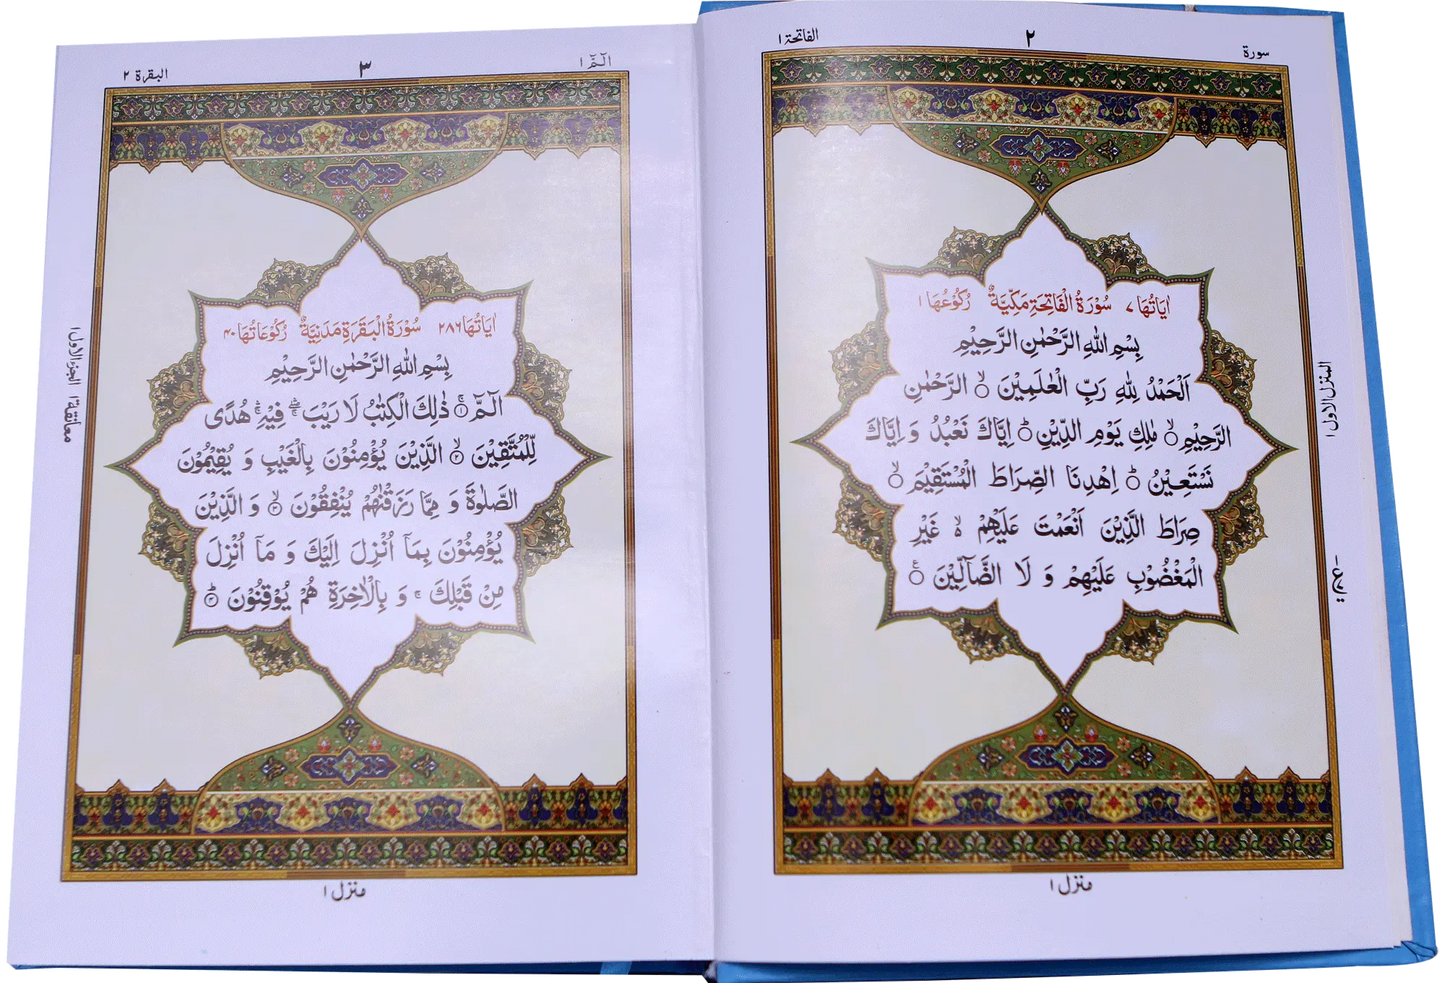 سورة
٢
الفاتحة ١
اٰيَاتُهَا ٧ سُوْرَةُ الْفَاتِحَةِ مَكِّيَّةٌ رُكُوْعُهَا ١
بِسْمِ اللّٰهِ الرَّحْمٰنِ الرَّحِيْمِ
اَلْحَمْدُ لِلّٰهِ رَبِّ الْعٰلَمِيْنَ ۙ الرَّحْمٰنِ
الرَّحِيْمِ ۙ مٰلِكِ يَوْمِ الدِّيْنِ ؕ اِيَّاكَ نَعْبُدُ وَ اِيَّاكَ
نَسْتَعِيْنُ ؕ اِهْدِنَا الصِّرَاطَ الْمُسْتَقِيْمَ ۙ
صِرَاطَ الَّذِيْنَ اَنْعَمْتَ عَلَيْهِمْ ۙ۬ غَيْرِ
الْمَغْضُوْبِ عَلَيْهِمْ وَ لَا الضَّآلِّيْنَ
المنزل الاول ١
منزل ١
الٓمّٓ ١
٣
البقرة ٢
اٰيَاتُهَا ٢٨٦ سُوْرَةُ الْبَقَرَةِ مَدَنِيَّةٌ رُكُوْعَاتُهَا ٤٠
بِسْمِ اللّٰهِ الرَّحْمٰنِ الرَّحِيْمِ
الٓمّٓ ۚ‏ ١ ذٰلِكَ الْكِتٰبُ لَا رَيْبَ ۛۖ فِيْهِ ۛۚ هُدًى
لِّلْمُتَّقِيْنَ ۙ ٢ الَّذِيْنَ يُؤْمِنُوْنَ بِالْغَيْبِ وَ يُقِيْمُوْنَ
الصَّلٰوةَ وَ مِمَّا رَزَقْنٰهُمْ يُنْفِقُوْنَ ۙ ٣ وَ الَّذِيْنَ
يُؤْمِنُوْنَ بِمَآ اُنْزِلَ اِلَيْكَ وَ مَآ اُنْزِلَ
مِنْ قَبْلِكَ ۚ وَ بِالْاٰخِرَةِ هُمْ يُوْقِنُوْنَ ؕ ٤
معانقة ١ الجزء الاول ١
منزل ١